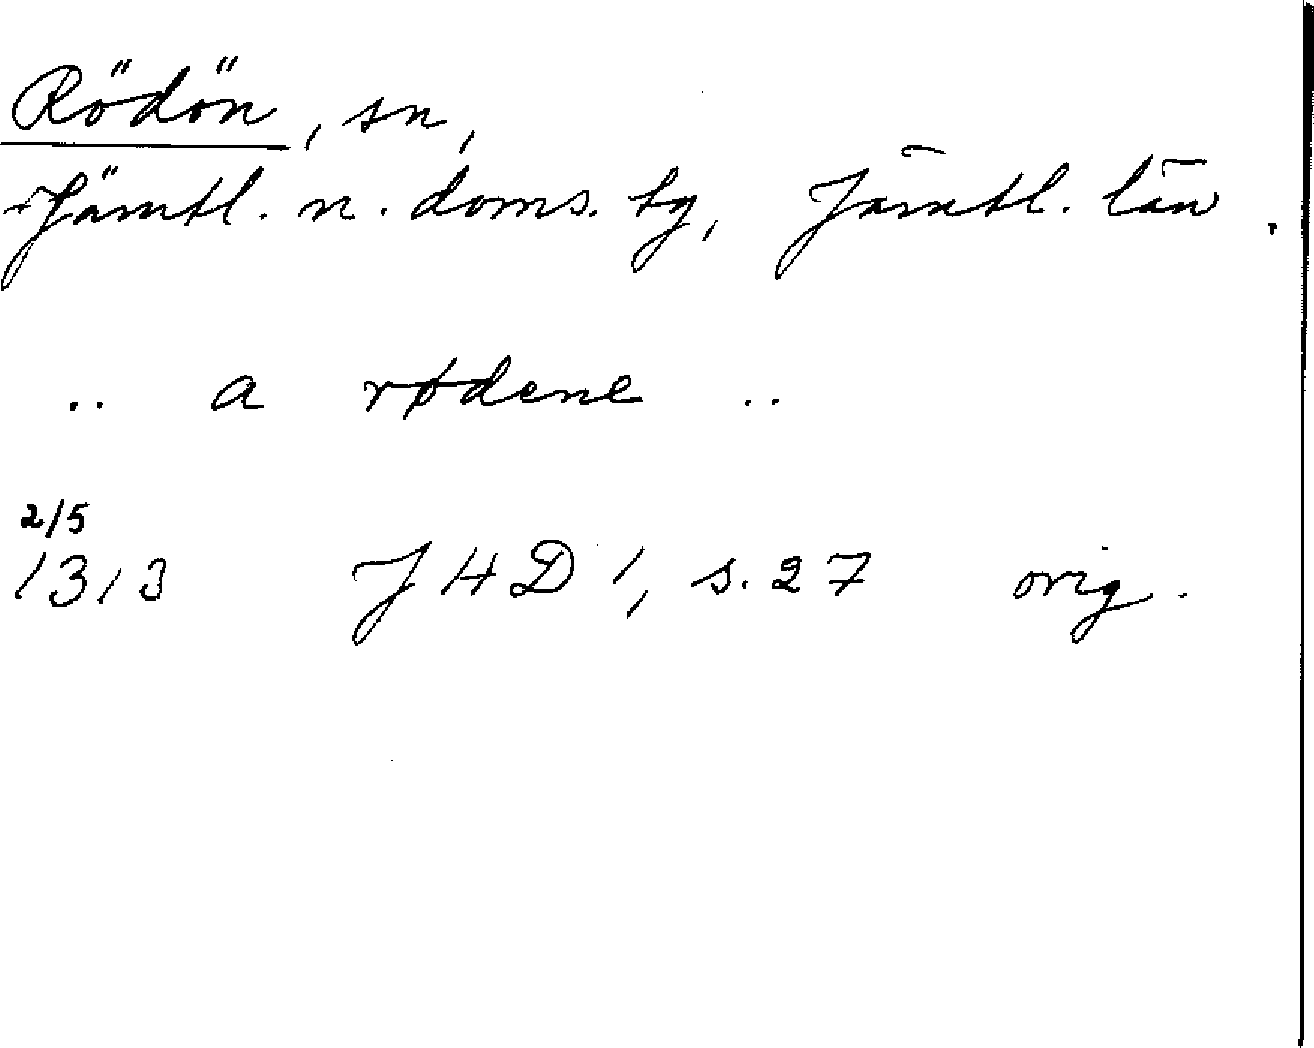 Rödön, sn,
Jämtl. n. doms. tg, Jämtl. län.
.. a rødene ..
2/5
1313 JHD 1, s. 27 orig.